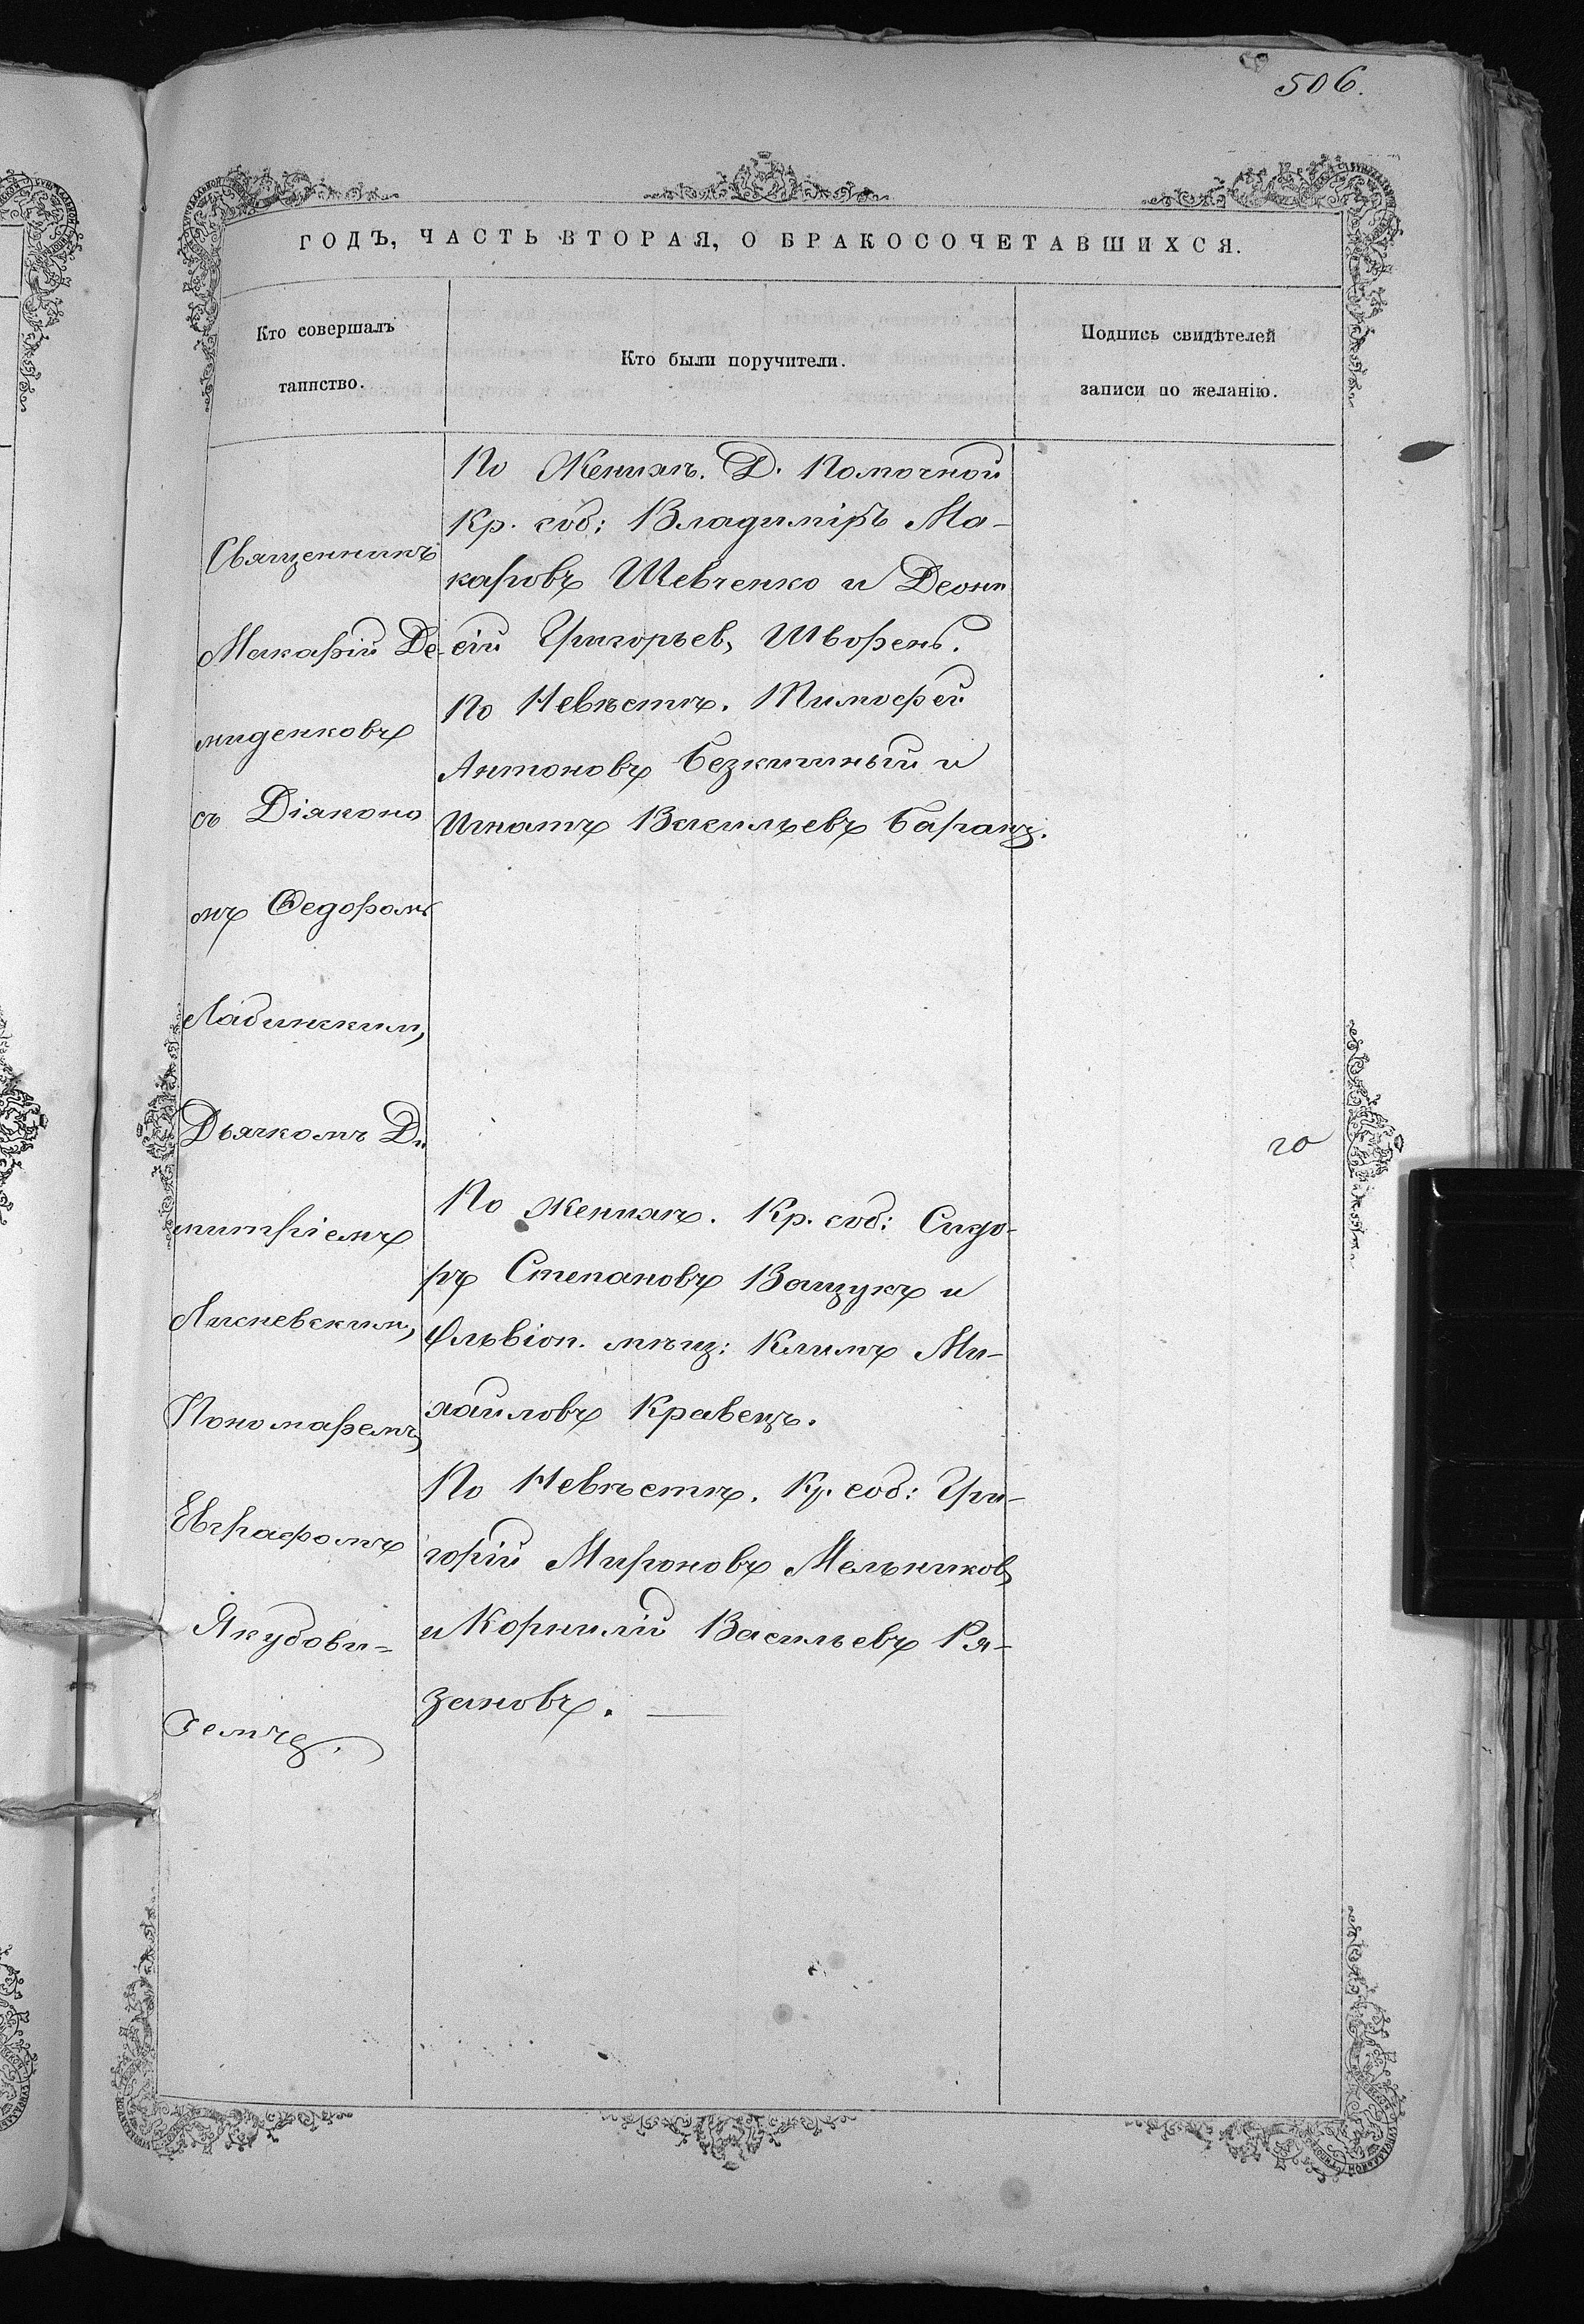 506.
ГОДЪ, ЧАСТЬ ВТОРАЯ, О БРАКОСОЧЕТАВШИХСЯ.
Кто совершалъ
таинство.
Кто были поручители.
Подпись свидѣтелей
записи по желанію.
Священникъ
Макарій Де-
миденковъ
съ Діяконо
мъ Ѳедоромъ
Лабинскимъ,
Дьячкомъ Ди
митріемъ
Лисневскимъ,
Пономаремъ
Евграфомъ
Якубови=
чемъ.
По Женихѣ. Д. Помочной
Кр. соб: Владиміръ Ма-
каровъ Шевченко и Деони
сій Григорьевъ Шворень.
По Невѣстѣ. Тимофей
Антоновъ Безкишный и
Игнатъ Васильевъ Баранъ.
По Женихѣ. Кр. соб: Сидо-
ръ Степановъ Ващукъ и
Ольвіоп. мѣщ: Климъ Ми-
хайловъ Кравецъ.
По Невѣстѣ. Кр. соб: Гри-
горій Мироновъ Мельниковъ
и Корнилій Васильевъ Ря-
зановъ.